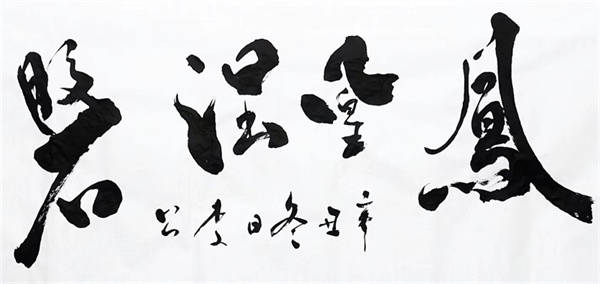 鳳凰涅磐
辛丑冬日李